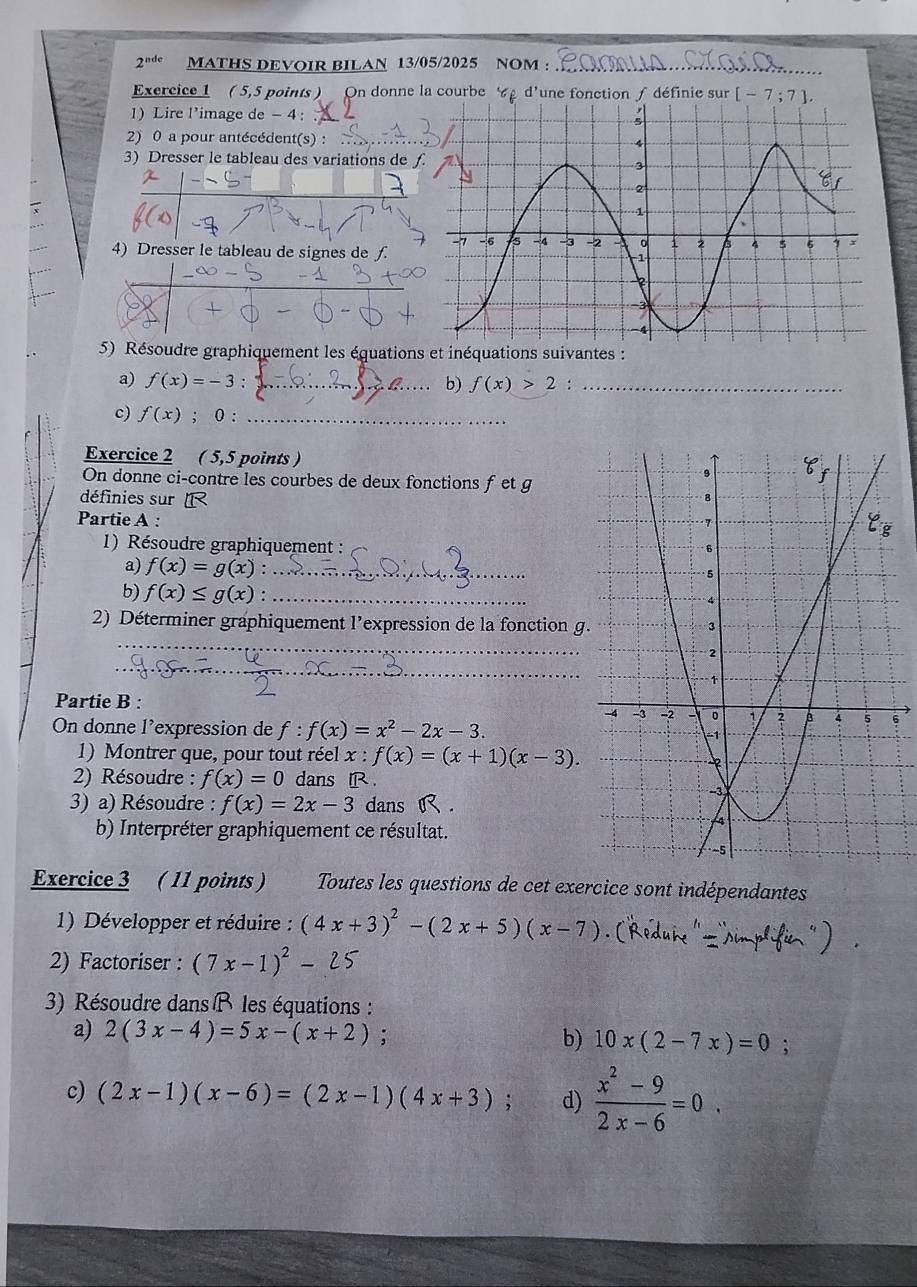 2nde MATHS DEVOIR BILAN 13/05/2025 NOM :
Exercice 1 ( 5,5 points ) On donne la courbe 𝒞f d'une fonction f définie sur [ − 7 ; 7 ].
1) Lire l'image de − 4 : 2
2) 0 a pour antécédent(s) : -5, -1 3
3) Dresser le tableau des variations de f.
x -5 7
f(x) 3 -4 4
4) Dresser le tableau de signes de f.
-∞ -5 -1 3 +∞
+ 0 - 0 - 0 +
5) Résoudre graphiquement les équations et inéquations suivantes :
a) f(x) = − 3 : {-6; 2} b) f(x) > 2 :
c) f(x) ; 0 :
5 4 3 2 1
-7 -6 -5 -4 -3 -2 0 1 2 3 4 5 6 7 x
-1 -2 -3 -4
𝒞f
Exercice 2 ( 5,5 points )
On donne ci-contre les courbes de deux fonctions f et g
définies sur ℝ
Partie A :
1) Résoudre graphiquement :
a) f(x) = g(x) : S = {0; 4}
b) f(x) ≤ g(x) :
2) Déterminer graphiquement l'expression de la fonction g.
g x = 4/2 x - 3
𝒞f
𝒞g
9 8 7 6 5 4 3 2 1
-4 -3 -2 0 1 2 3 4 5 6
-1 -2 -3 -4 -5
Partie B :
On donne l'expression de f : f(x) = x² − 2x − 3.
1) Montrer que, pour tout réel x : f(x) = (x + 1)(x − 3).
2) Résoudre : f(x) = 0 dans ℝ.
3) a) Résoudre : f(x) = 2x − 3 dans ℝ.
b) Interpréter graphiquement ce résultat.
Exercice 3 ( 11 points ) Toutes les questions de cet exercice sont indépendantes
1) Développer et réduire : ( 4 x + 3 )² − ( 2 x + 5 ) ( x − 7 ) . ("Réduire" = "simplifier") .
2) Factoriser : ( 7 x − 1 )² − 25
3) Résoudre dans ℝ les équations :
a) 2 ( 3 x − 4 ) = 5 x − ( x + 2 ) ; b) 10 x ( 2 − 7 x ) = 0 ;
c) ( 2 x − 1 ) ( x − 6 ) = ( 2 x − 1 ) ( 4 x + 3 ) ; d) (x² − 9)/(2 x − 6) = 0 .